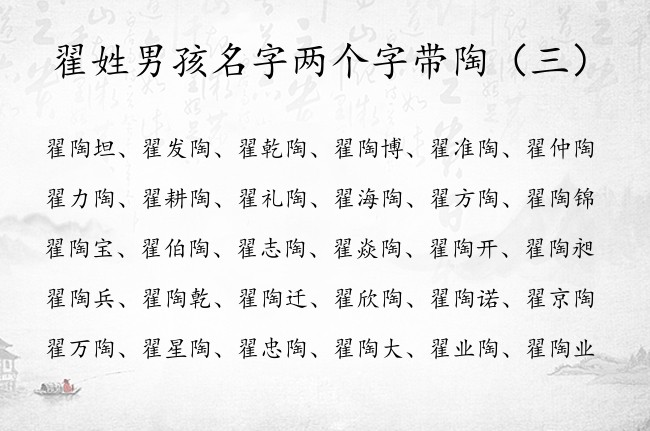 翟姓男孩名字两个字带陶（三）
翟陶坦、翟发陶、翟乾陶、翟陶博、翟准陶、翟仲陶
翟力陶、翟耕陶、翟礼陶、翟海陶、翟方陶、翟陶锦
翟陶宝、翟伯陶、翟志陶、翟焱陶、翟陶开、翟陶昶
翟陶兵、翟陶乾、翟陶迁、翟欣陶、翟陶诺、翟京陶
翟万陶、翟星陶、翟忠陶、翟陶大、翟业陶、翟陶业